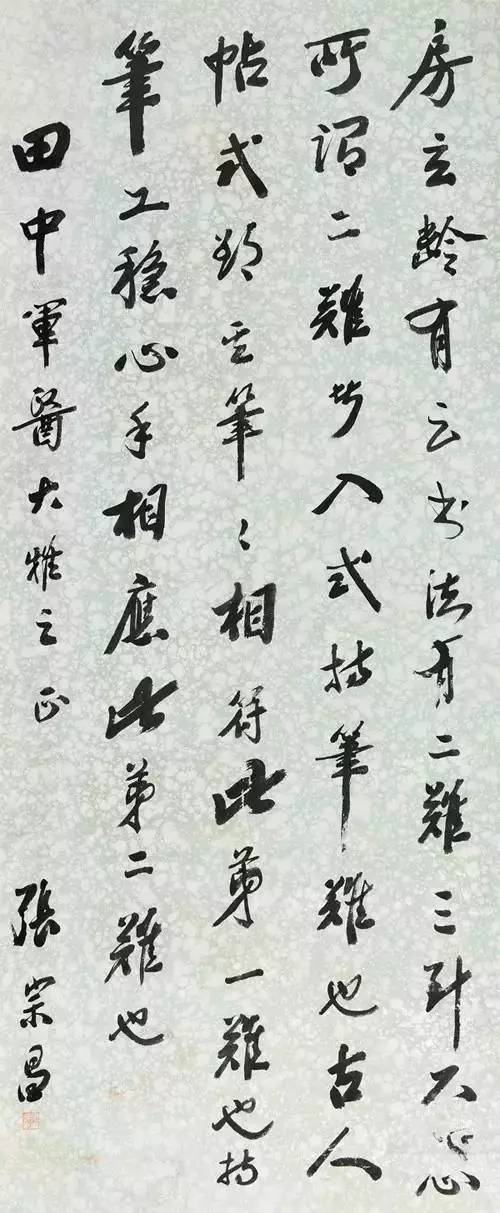 房玄齡有云书法有二難三不
所謂二難入式持筆難也古人
帖式云筆〻相符此第一難也持
筆工穩心手相應此第二難也
田中軍醫大雅之正 張宗昌